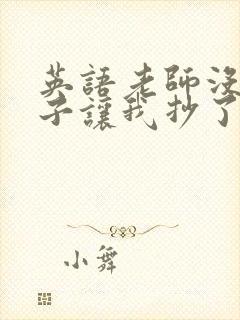 英語老師沒
子讓我抄了
小舞